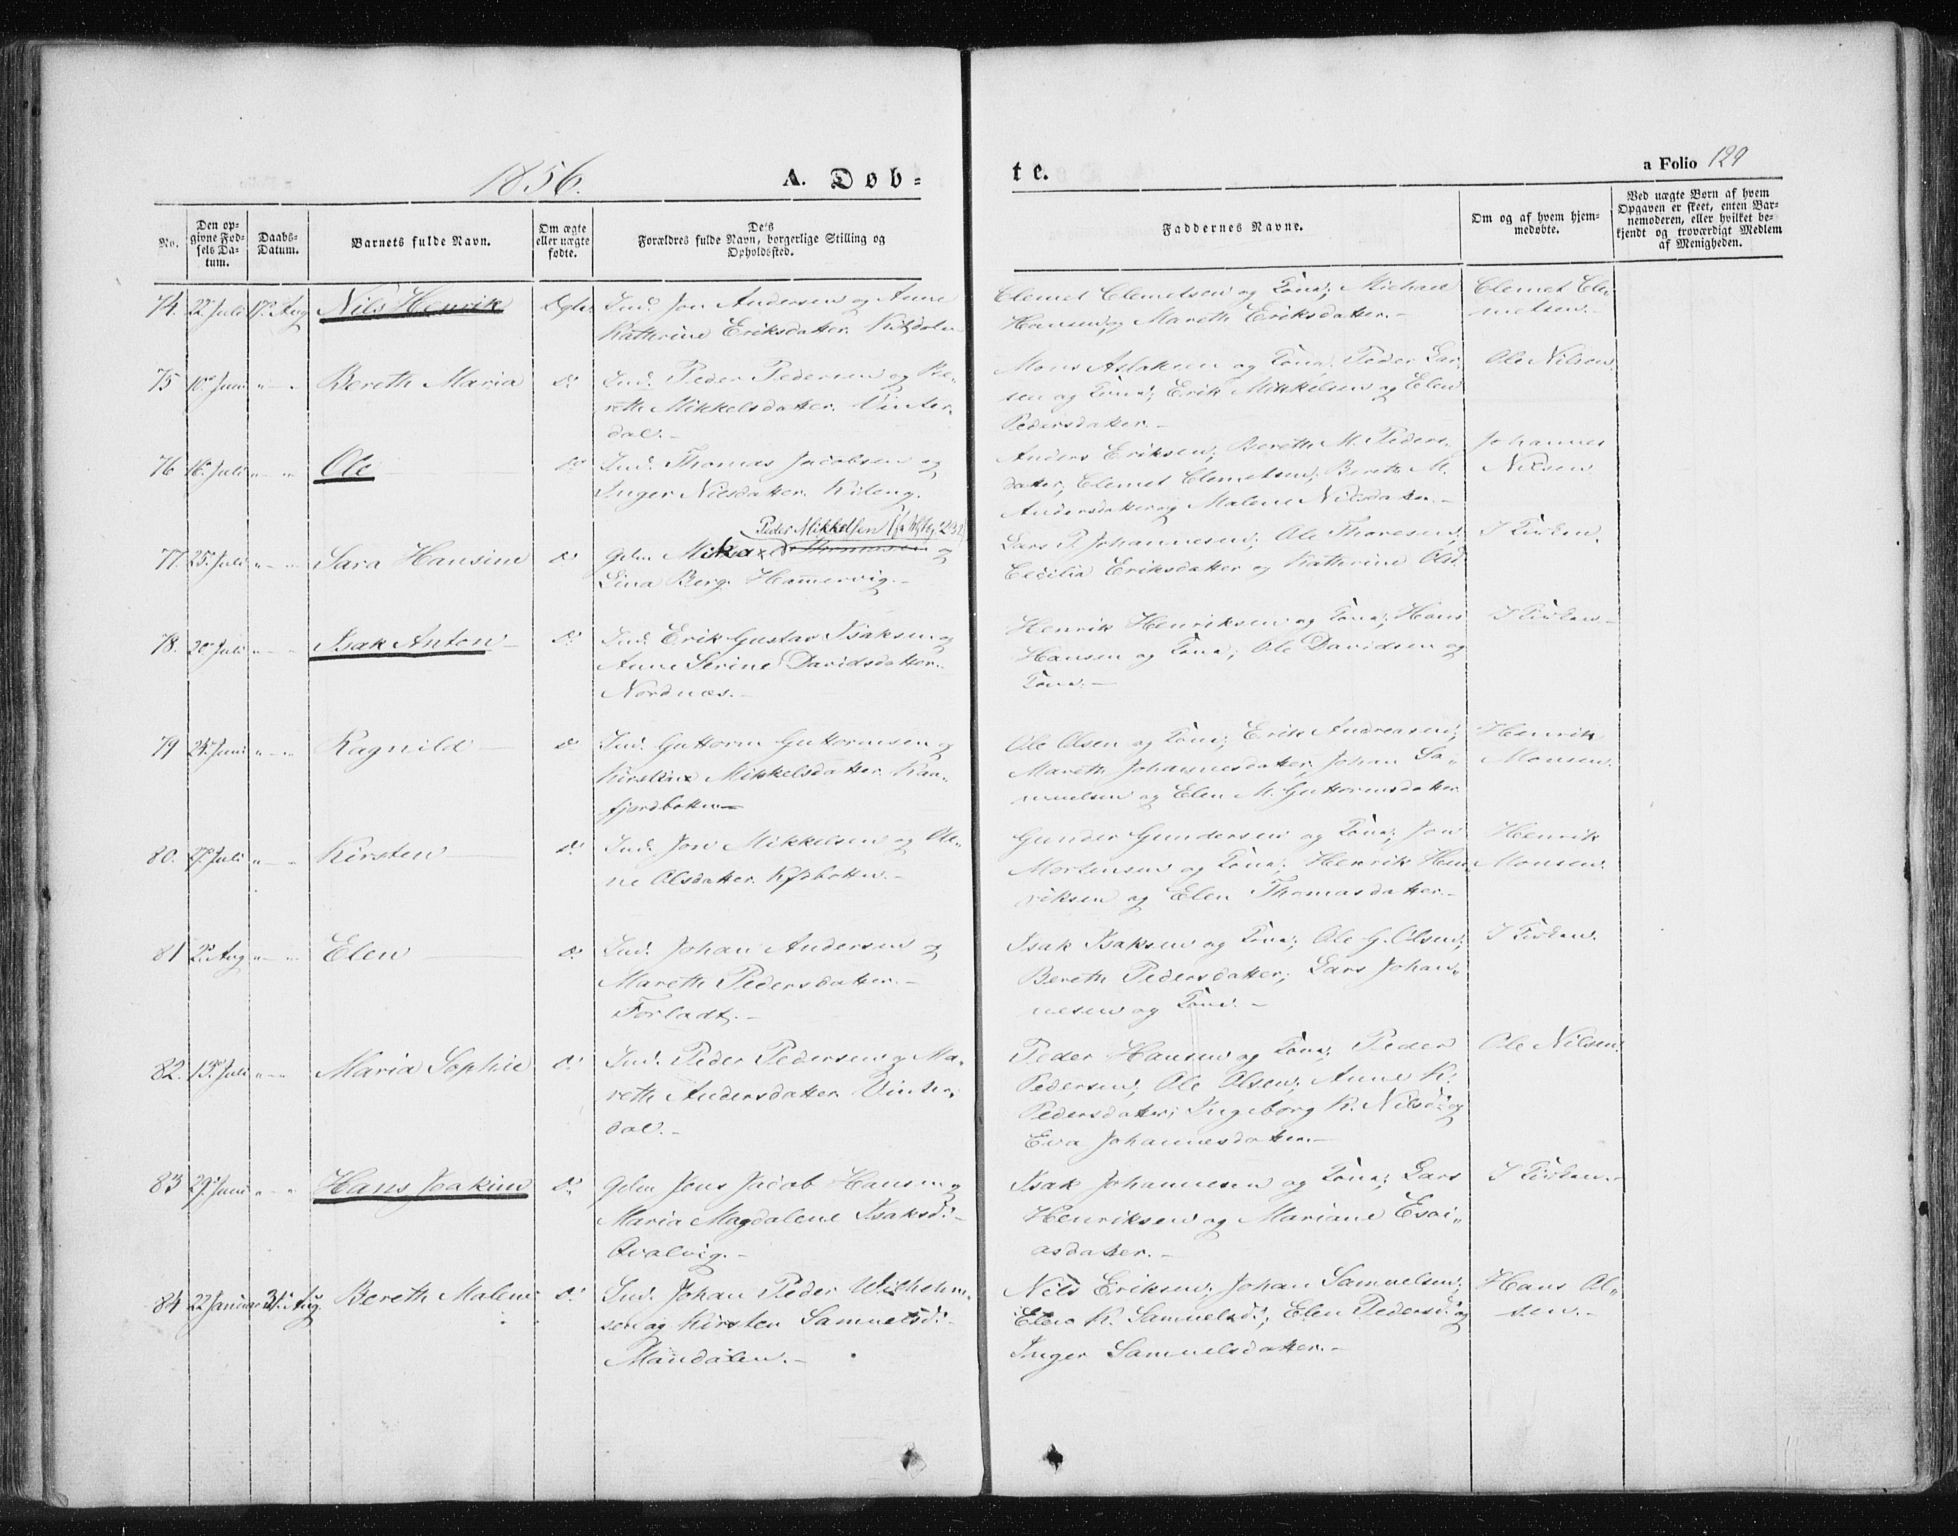 1856. A. Døb=
te.
a Folio 129
No.
Den op-
givne Fød-
sels Da-
tum.
Daabs-
Datum.
Barnets fulde Navn.
Om ægte
eller uægte
fødte.
De's
Forældres fulde Navn, borgerlige Stilling og
Opholdssted.
Faddernes Navne.
Om og af hvem hjem-
medøbte.
Ved uægte Børn af hvem
Opgaven er skeet, enten Bar-
nemoderen, eller hvilket be-
kjendt og troværdigt Medlem
af Menigheden.
74. 22 Juli 17. Aug Nils Henrik Egte. Ind. Jon Andersen og Anne
Katherine Eriksdatter. Kitdalen
Clemet Clemetsen og Kona; Michael
Hansen og Mareth Eriksdatter.-
Clemet Cle-
metsen.-
75 10 Juni " " Bereth Maria do Ind. Peder Pedersen og Be-
reth Mikkelsdatter. Vinter-
dal.-
Mons Aslaksen og Kona; Peder Lar-
sen og Kona; Erik Mikkelsen og Elen
Pedersdatter.-
Ole Nilsen.
76 16. Juli " " Ole do Ind. Thomas Jacobsen og
Inger Nilsdatter. Kileng.
Anders Eriksen; Bereth M. Peders-
datter, Clemet Clemetsen; Bereth M.
Andersdatter og Malene Nilsdatter.-
Johannes
Nilsen.
Peder Mikkelsen
77. 25. Juli " " Sara Hansine do Gtm og
Lina Berg. Hamervig.-
Lars P. Johannesen; Ole Thoresen;
Cecilia Eriksdatter og Katherine Olsd.
I Kirken.
78. 20 Juli " " Isak Anton - do Ind. Erik Gustav Isaksen og
Anne Serine Davidsdatter.
Nordnæs.-
Henrik Henriksen og Kona; Hans
Hansen og Kona; Ole Davidsen og
Kona.-
I Kirken.-
79 24. Juni " " Ragnild - do Ind. Guttorm Guttormsen og
Kirstine Mikkelsdatter. Kaa-
fjordbotten
Ole Olsen og Kona; Erik Andreasen;
Mareth Johannesdatter; Johan Sa-
muelsen og Elen M. Guttormsdatter
Henrik
Monsen.
80. 27. Juli " " Kirsten - do Ind. Jon Mikkelsen og Ole-
ne Olsdatter. Kfdbotten.-
Gunder Gundersen og Kona; Jon
Mortensen og Kona; Henrik Hen-
riksen og Elen Thomasdatter.-
Henrik
Monsen.
81 2. Aug " " Elen - do Ind. Johan Andersen og
Mareth Pedersdatter.-
Forladt.-
Isak Isaksen og Kona; Ole G. Olsen;
Bereth Pedersdatter; Lars Johan-
nesen og Kona.-
I Kirken.
82. 13. Juli " " Maria Sophie do Ind. Peder Pedersen og Ma-
reth Andersdatter. Vinter-
dal.-
Peder Hansen og Kona; Peder
Pedersen; Ole Olsen; Anne K.
Pedersdatter; Ingeborg K. Nilsd. og
Eva Johannesdatter.-
Ole Nilsen.
83 29. Juni " " Hans Joakim do Gtm Jens Jacob Hansen og
Maria Magdalene Isaksd.-
Qvalvig.-
Isak Johannesen og Kona; Lars
Henriksen og Mariane Esai-
asdatter.-
I Kirken.
84 22 Januar 31. Aug. Bereth Malene do Ind. Johan Peder Wilhelm-
sen og Kirsten Samuelsd.-
Mandalen.-
Nils Eriksen; Johan Samuelsen;
Elen K. Samuelsd.; Elen Pedersd. og
Inger Samuelsdatter.-
Hans Ol-
sen.-